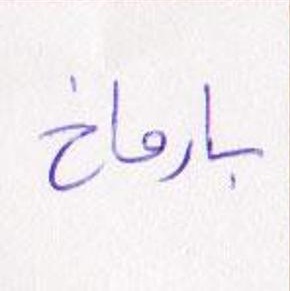 بارماخ